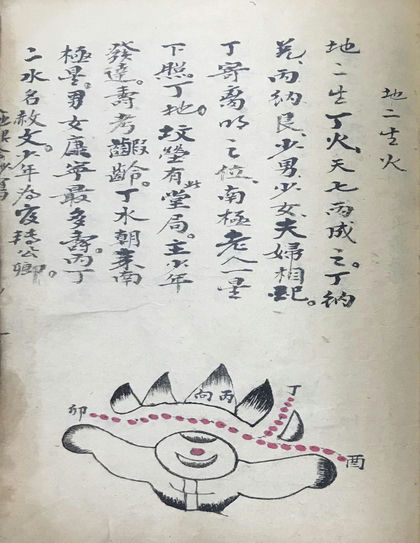 地二生火
地二生丁火、天七丙成之。丁納
兌、丙納艮、少男少女、夫婦相配。
丁寄离明之位、南極老人一星
下照。丁地。坟塋有此堂局。主少年
發達。壽考齡。丁水朝来南
極星。男女康寧最多壽。丙丁
二水名赦文。少年為官轉公卿。
丁
丙向
卯
酉